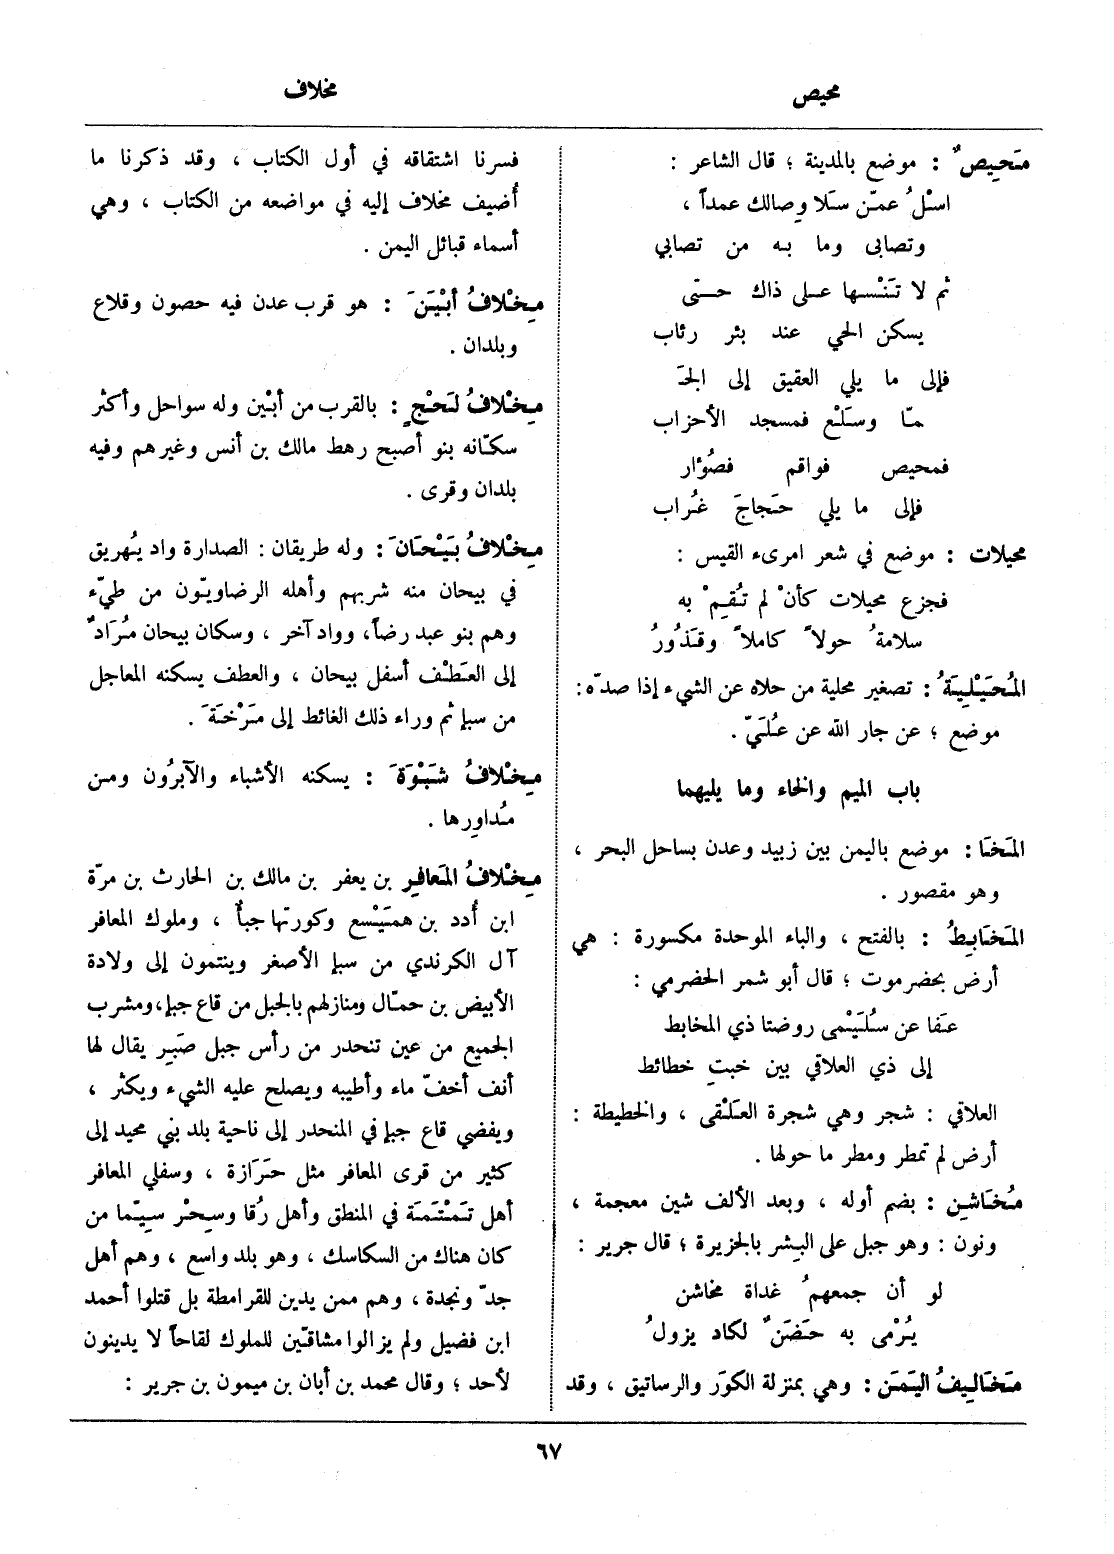 محيص
مخلاف
مَحِيصٌ : موضع بالمدينة ؛ قال الشاعر :
اسْلُ عمّن سَلا وصالك عمداً ،
وتصابى وما به من تصابي
ثم لا تَنْسها على ذاك حتى
يسكن الحي عند بئر رئاب
فإلى ما يلي العقيق إلى الجَـ
ـمّا وسَلْع فمسجد الأحزاب
فمحيص فواقم فصُؤار
فإلى ما يلي حَجاجَ غُراب
محيلات : موضع في شعر امرىء القيس :
فجزع محيلات كأنْ لم تُقِمْ به
سلامةُ حولاً كاملاً وقَذُورُ
المُحَيْلِيَةُ : تصغير محلية من حلاه عن الشيء إذا صدّه :
موضع ؛ عن جار الله عن عُلَيّ .
باب الميم والخاء وما يليهما
المَخَا : موضع باليمن بين زبيد وعدن بساحل البحر ،
وهو مقصور .
المَخَابِطُ : بالفتح ، والباء الموحدة مكسورة : هي
أرض بحضرموت ؛ قال أبو شمر الحضرمي :
عَفا عن سُلَيْمى روضتا ذي المخابط
إلى ذي العلاقي بين خبتِ خطائط
العلاقي : شجر وهي شجرة العَلْقى ، والخطيطة :
أرض لم تمطر ومطر ما حولها .
مُخَاشِن : بضم أوله ، وبعد الألف شين معجمة ،
ونون : وهو جبل على البِشر بالجزيرة ؛ قال جرير :
لو أن جمعهمُ غداة مخاشن
يُرْمى به حَضَنٌ لكاد يزولُ
مَخَالِيفُ اليَمَن : وهي بمنزلة الكوَر والرساتيق ، وقد
فسرنا اشتقاقه في أول الكتاب ، وقد ذكرنا ما
أُضيف مخلاف إليه في مواضعه من الكتاب ، وهي
أسماء قبائل اليمن .
مِخْلافُ أَبْيَنَ : هو قرب عدن فيه حصون وقلاع
وبلدان .
مِخْلافُ لَحْجٍ : بالقرب من أَبْين وله سواحل وأكثر
سكّانه بنو أصبح رهط مالك بن أنس وغيرهم وفيه
بلدان وقرى .
مِخْلافُ بَيْحَانَ : وله طريقان : الصدارة واد يُهريق
في بيحان منه شربهم وأهله الرضاويّون من طيّء
وهم بنو عبد رضاً، وواد آخر ، وسكان بيحان مُرَادٌ
إلى العَطْف أسفل بيحان ، والعطف يسكنه المعاجل
من سبإ ثم وراء ذلك الغائط إلى مَرْخَةَ .
مِخْلافُ شَبْوَةَ : يسكنه الأشباء والآبرُون ومن
مُداوِرها .
مِخْلافُ المَعافِرِ بن يعفر بن مالك بن الحارث بن مرّة
ابن أُدد بن هميْسع وكورتها جبأ ، وملوك المعافر
آل الكرندي من سبإ الأصغر وينتمون إلى ولادة
الأبيض بن حمّال ومنازلهم بالجبل من قاع جبإ، ومشرب
الجميع من عين تنحدر من رأس جبل صَبِر يقال لها
أنف أخفّ ماء وأطيبه ويصلح عليه الشيء ويكثر ،
ويفضي قاع جبإ في المنحدر إلى ناحية بلد بني مجيد إلى
كثير من قرى المعافر مثل حَرَازة ، وسفلي المعافر
أهل تَمْتَمَة في المنطق وأهل رُقا وسِحْر سيّما من
كان هناك من السكاسك ، وهو بلد واسع ، وهم أهل
جدّ ونجدة ، وهم ممن يدين للقرامطة بل قتلوا أحمد
ابن فضيل ولم يزالوا مشاقّين للملوك لقاحاً لا يدينون
لأحد ؛ وقال محمد بن أبان بن ميمون بن جرير :
٦٧